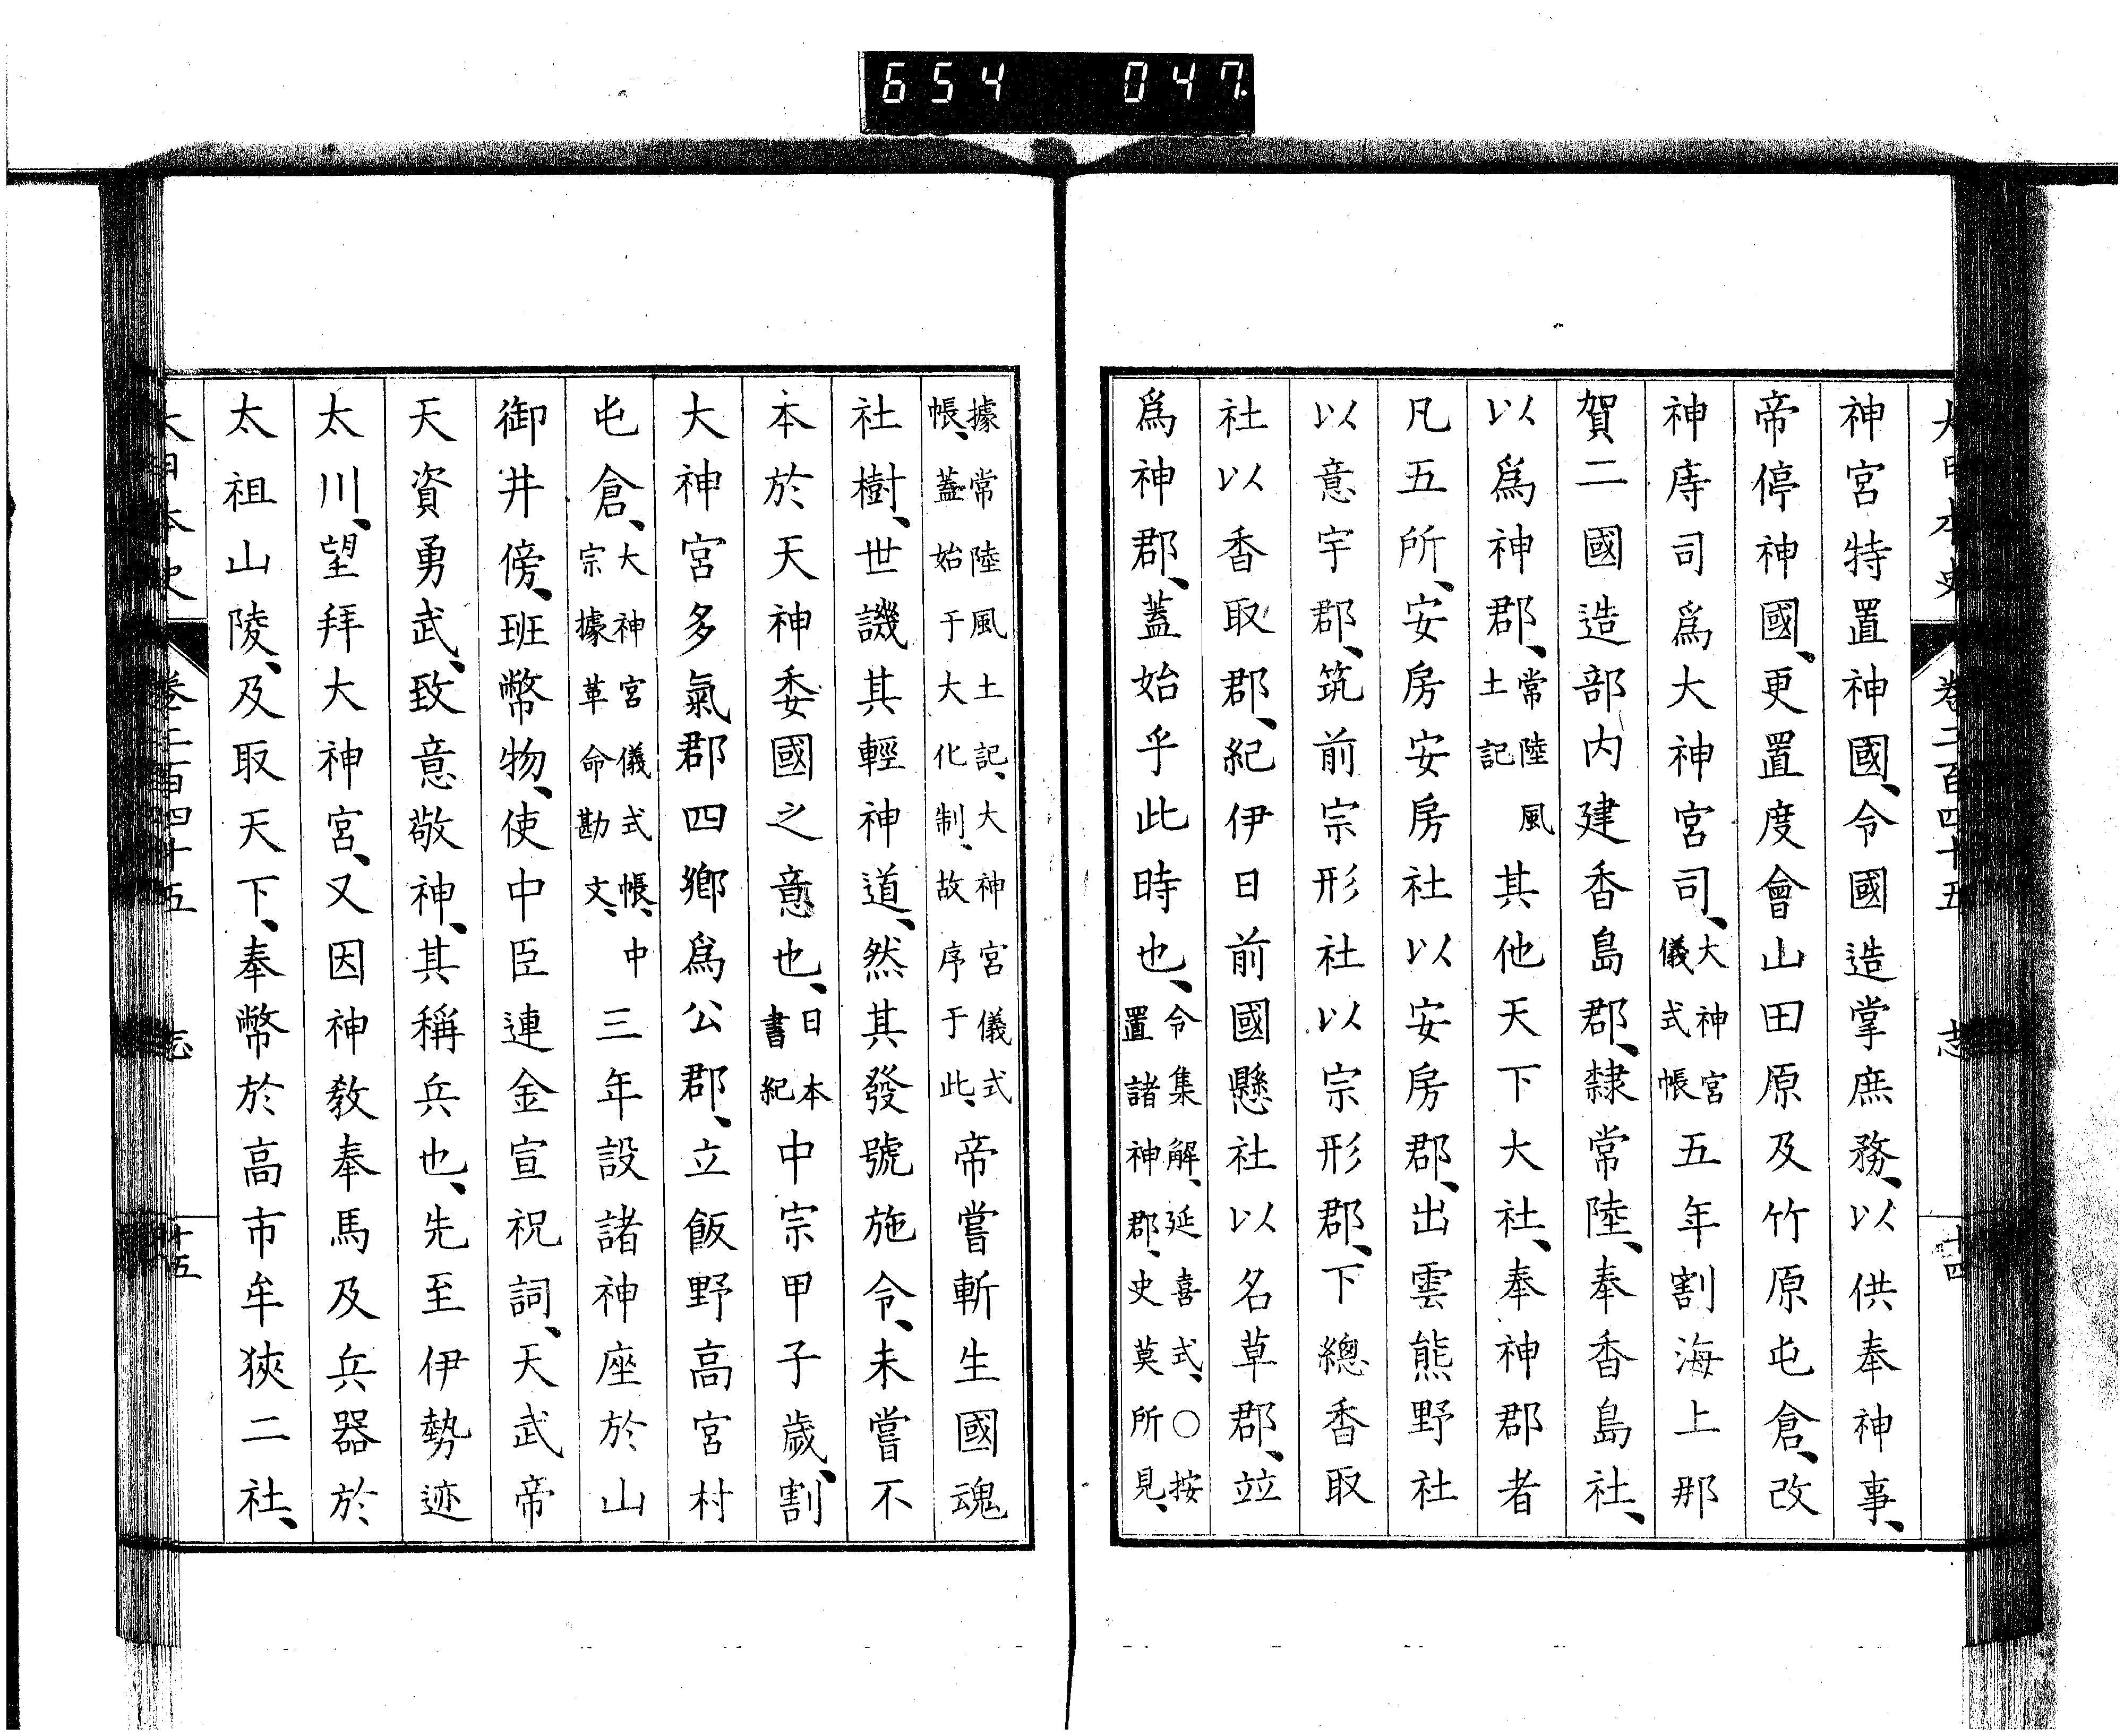 654 047.
大日本史 卷二百四十五 志 十四
神宮特置神國、令國造掌庶務、以供奉神事、
帝停神國、更置度會山田原及竹原屯倉、改
神庤司爲大神宮司、大神宮儀式帳五年割海上那
賀二國造部內建香島郡、隸常陸、奉香島社、
以爲神郡、常陸風土記其他天下大社、奉神郡者
凡五所、安房安房社以安房郡、出雲熊野社
以意宇郡、筑前宗形社以宗形郡、下總香取
社以香取郡、紀伊日前國懸社以名草郡、竝
爲神郡、蓋始乎此時也、令集解、延喜式、○按置諸神郡、史莫所見、
據常陸風土記、大神宮儀式帳、蓋始于大化制、故序于此、帝嘗斬生國魂
社樹、世譏其輕神道、然其發號施令、未嘗不
本於天神委國之意也、日本書紀中宗甲子歲、割
大神宮多氣郡四鄉爲公郡、立飯野高宮村
屯倉、大神宮儀式帳、中宗據革命勘文、三年設諸神座於山
御井傍、班幣物、使中臣連金宣祝詞、天武帝
天資勇武、致意敬神、其稱兵也、先至伊勢迹
太川、望拜大神宮、又因神教奉馬及兵器於
太祖山陵、及取天下、奉幣於高市牟狹二社、
大日本史 卷二百四十五 志 十五